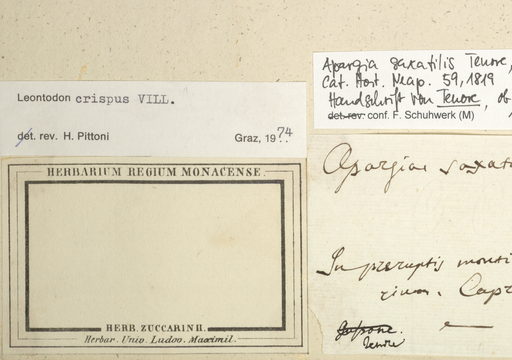 Apargia saxatilis Tenore,
Cat. Hort. Neap. 59, 1819
Handschrift von Tenore, ob
det. rev. conf. F. Schuhwerk (M)
Leontodon crispus VILL.
det. rev. H. Pittoni Graz, 1974
HERBARIUM REGIUM MONACENSE
HERB. ZUCCARINII.
Herbar. Univ. Ludov. Maximil.
Apargia saxat
In preruptis monti
rium. Capr
Tenore